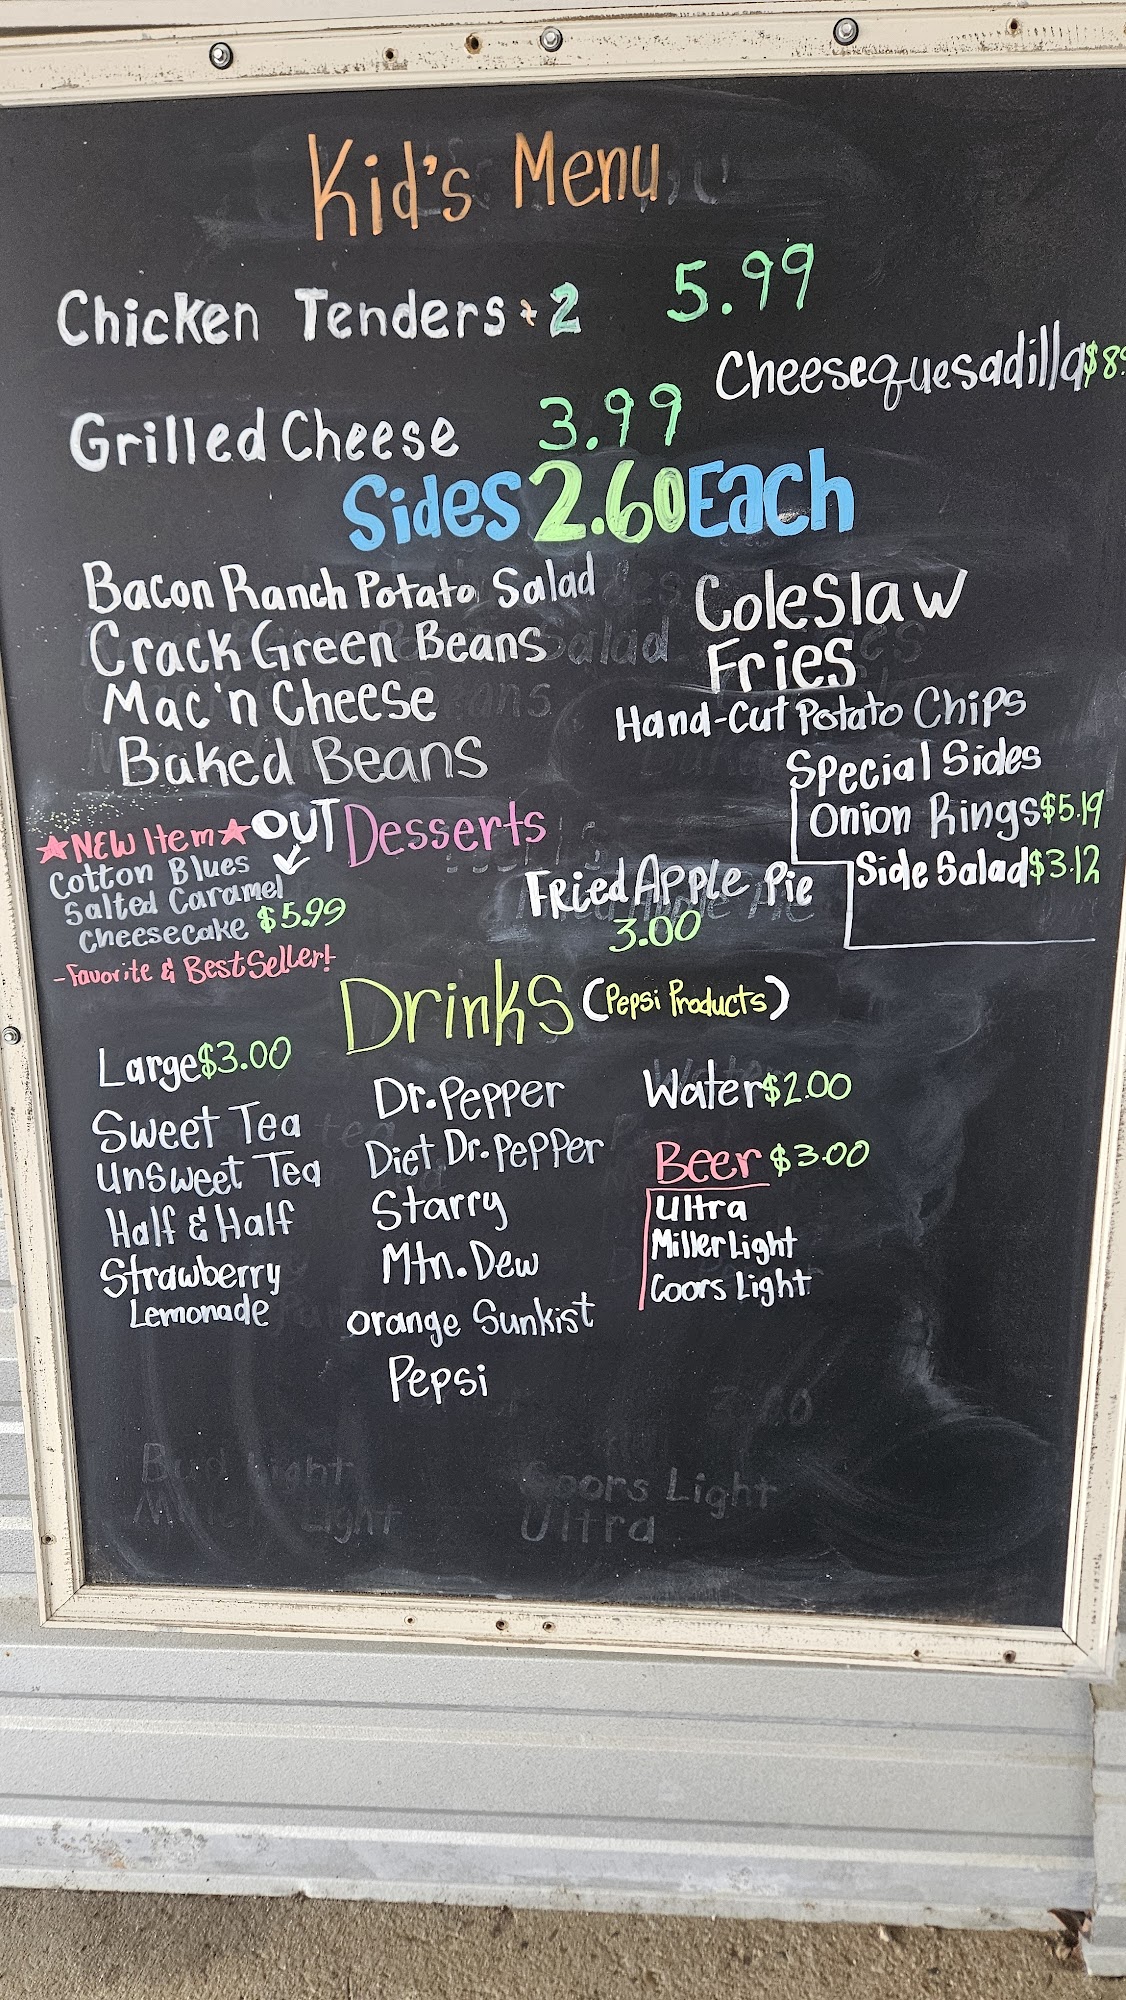 Kid's Menu
Chicken Tenders - 2 5.99
Cheesequesadilla $8
Grilled Cheese 3.99
Sides 2.60 Each
Bacon Ranch Potato Salad
Crack Green Beans
Mac 'n Cheese
Baked Beans
Coleslaw
Fries
Hand-Cut Potato Chips
Special Sides
Onion Rings $5.19
Side Salad $3.12
★NEW Item★ OUT
Cotton Blues
Salted Caramel
Cheesecake $5.99
-Favorite & Best Seller!
Desserts
Fried Apple Pie
3.00
Drinks (Pepsi Products)
Large $3.00
Sweet Tea
Unsweet Tea
Half & Half
Strawberry
Lemonade
Dr. Pepper
Diet Dr. Pepper
Starry
Mtn. Dew
Orange Sunkist
Pepsi
Water $2.00
Beer $3.00
Ultra
Miller Light
Coors Light
Bud Light
Coors Light
Ultra